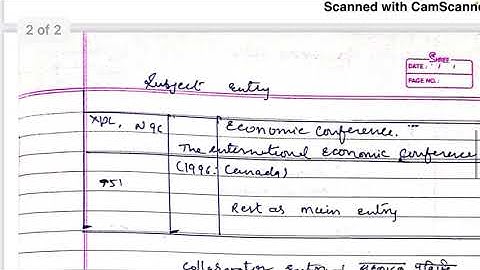 Scanned with CamScanne
2 of 2
SHREE
DATE: / /
PAGE NO.:
Subject entry
XPL, N9C Economic Conference.
The international Economic Conference
(1996: Canada)
951
Rest as main entry
Collaborator entry